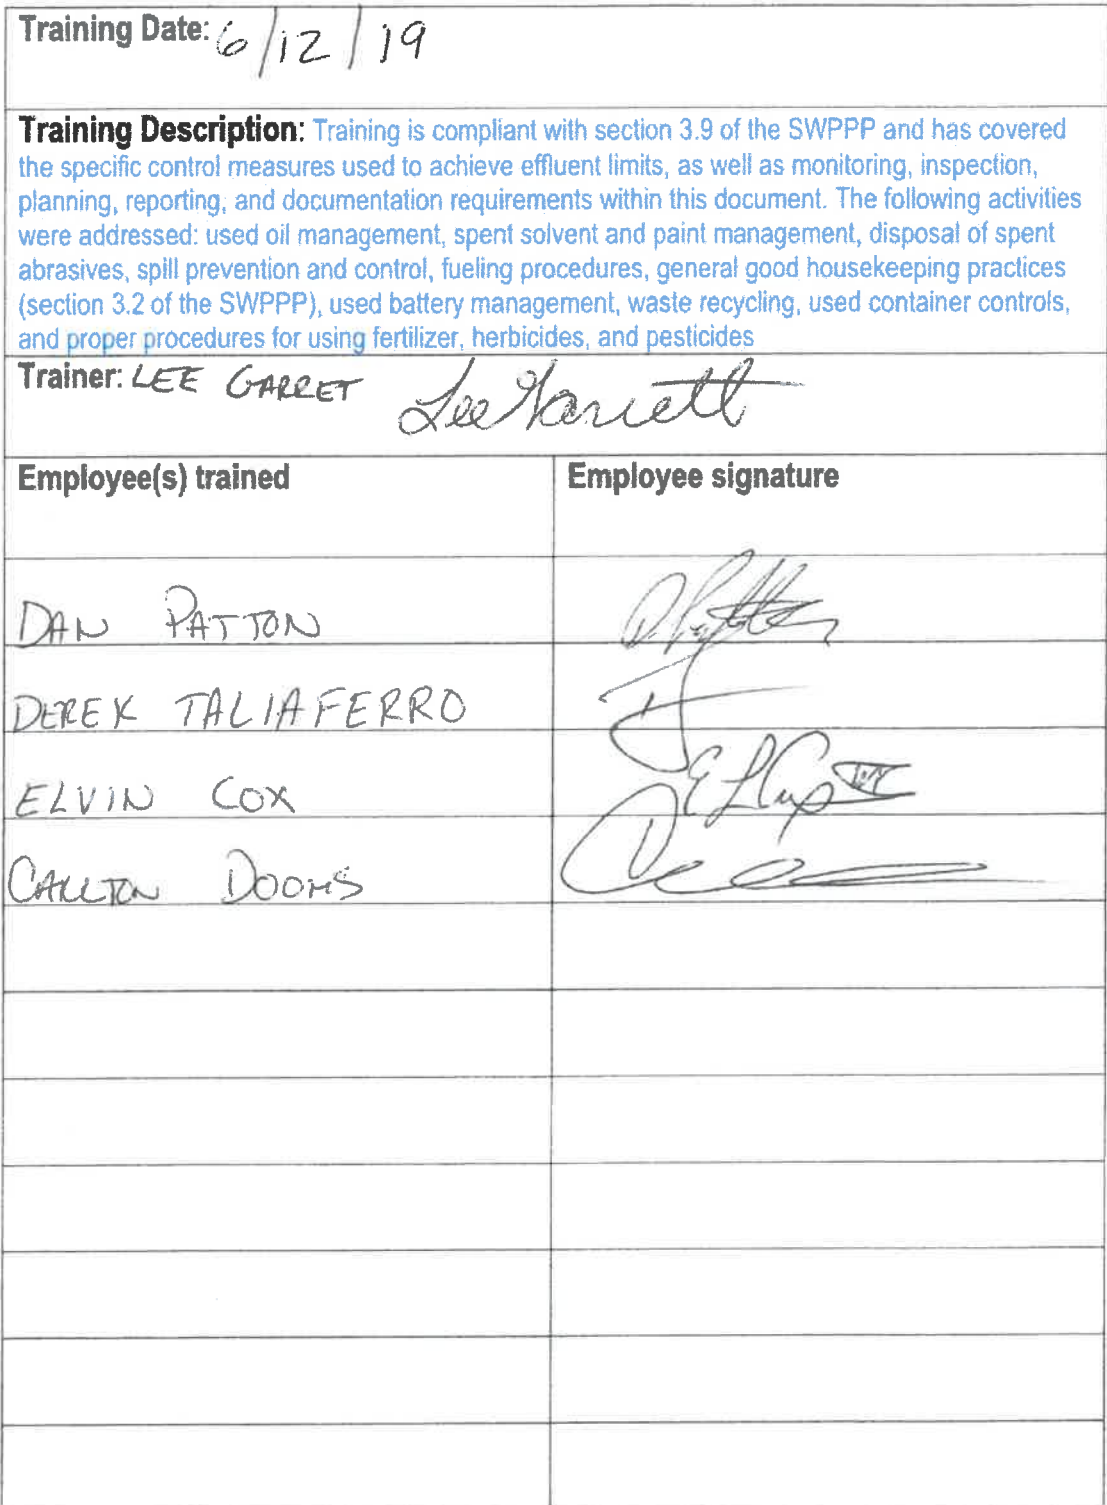 Training Date: 6/12/19
Training Description: Training is compliant with section 3.9 of the SWPPP and has covered
the specific control measures used to achieve effluent limits, as well as monitoring, inspection,
planning, reporting, and documentation requirements within this document. The following activities
were addressed: used oil management, spent solvent and paint management, disposal of spent
abrasives, spill prevention and control, fueling procedures, general good housekeeping practices
(section 3.2 of the SWPPP), used battery management, waste recycling, used container controls,
and proper procedures for using fertilizer, herbicides, and pesticides
Trainer: LEE GARRET Lee Garrett
Employee(s) trained Employee signature
DAN PATTON
DEREK TALIAFERRO
ELVIN COX
DOOMS